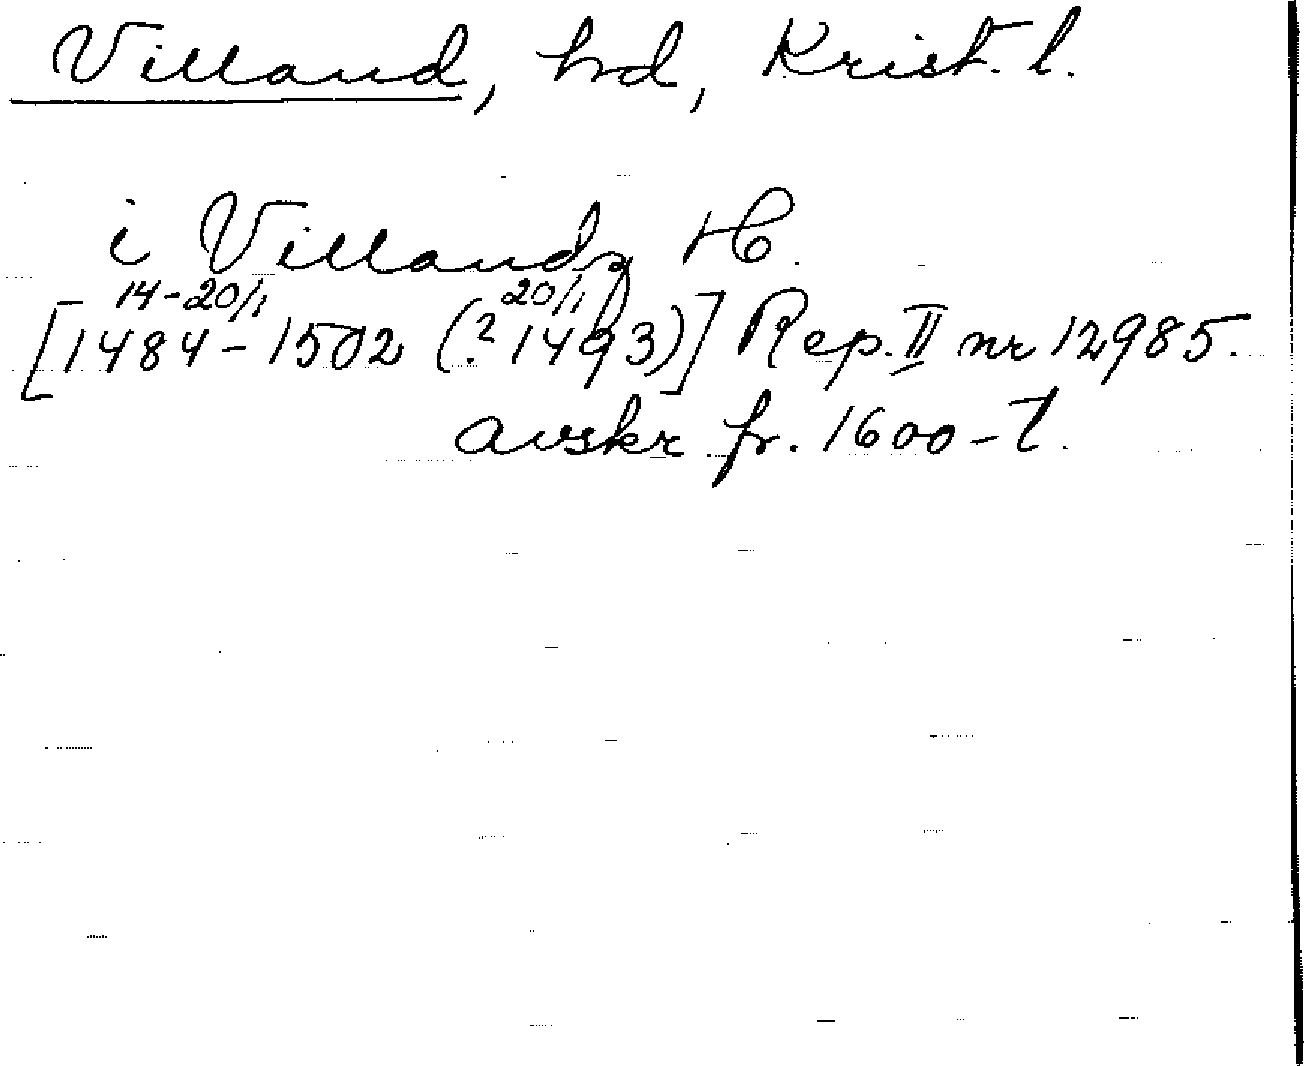 Villand, hd, Krist. l.
i Villandz H.
14-20/1 20/1
[1484-1502 (? 1493)] Rep. II nr 12985.
avskr fr. 1600-t.